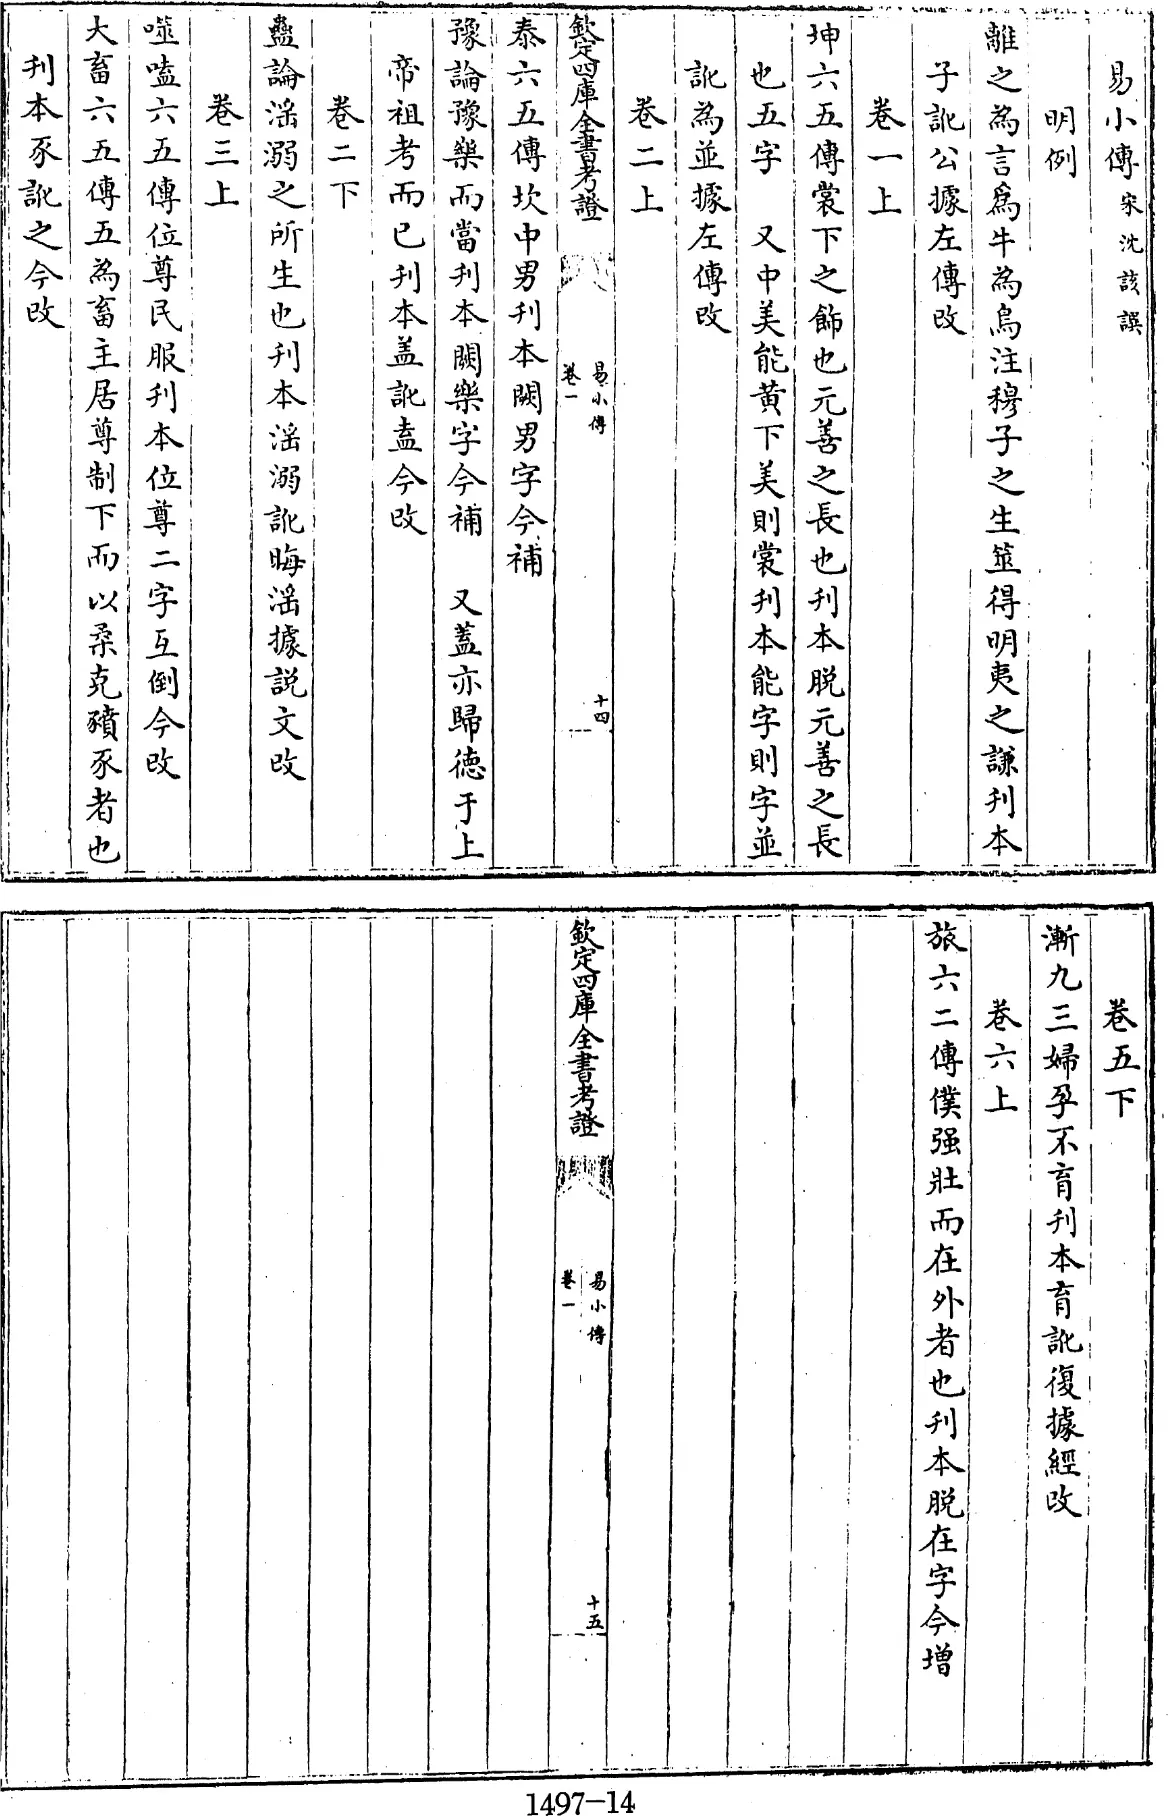 易小傳宋沈該譔
明例
離之為言為牛為鳥注穆子之生筮得明夷之謙刋本
子訛公據左傳改
卷一上
坤六五傳裳下之飾也元善之長也刋本脱元善之長
也五字 又中美能黄下美則裳刋本能字則字並
訛為並據左傳改
卷二上
欽定四庫全書考證
易小傳
卷一
十四
泰六五傳坎中男刋本闕男字今補
豫論豫樂而當刋本闕樂字今補 又蓋亦歸德于上
帝祖考而已刋本盖訛盍今改
卷二下
蠱論滛溺之所生也刋本滛溺訛晦滛據説文改
卷三上
噬嗑六五傳位尊民服刋本位尊二字互倒今改
大畜六五傳五為畜主居尊制下而以柔克豶豕者也
刋本豕訛之今改
卷五下
漸九三婦孕不育刋本育訛復據經改
卷六上
旅六二傳僕强壯而在外者也刋本脱在字今增
欽定四庫全書考證
易小傳
卷一
十五
1497-14